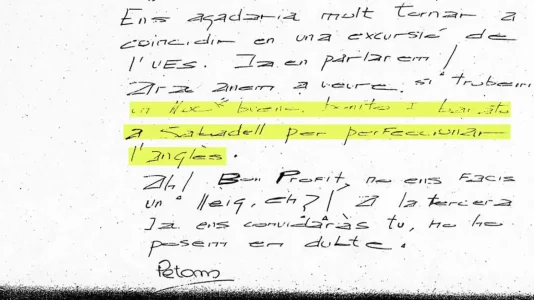 Ens agadaria molt tornar a
coincidir en una excursió de
l'UES. Ja en parlarem!
Ara anem a veure si trobem
un lloc "bueno, bonito i barato"
a Sabadell per perfeccionar
l'anglès.
Ah! Bon Profit, no ens facis
un lleig, eh?! A la tercera
Ja ens convidaràs tu, no ho
posem en dubte.
Petons